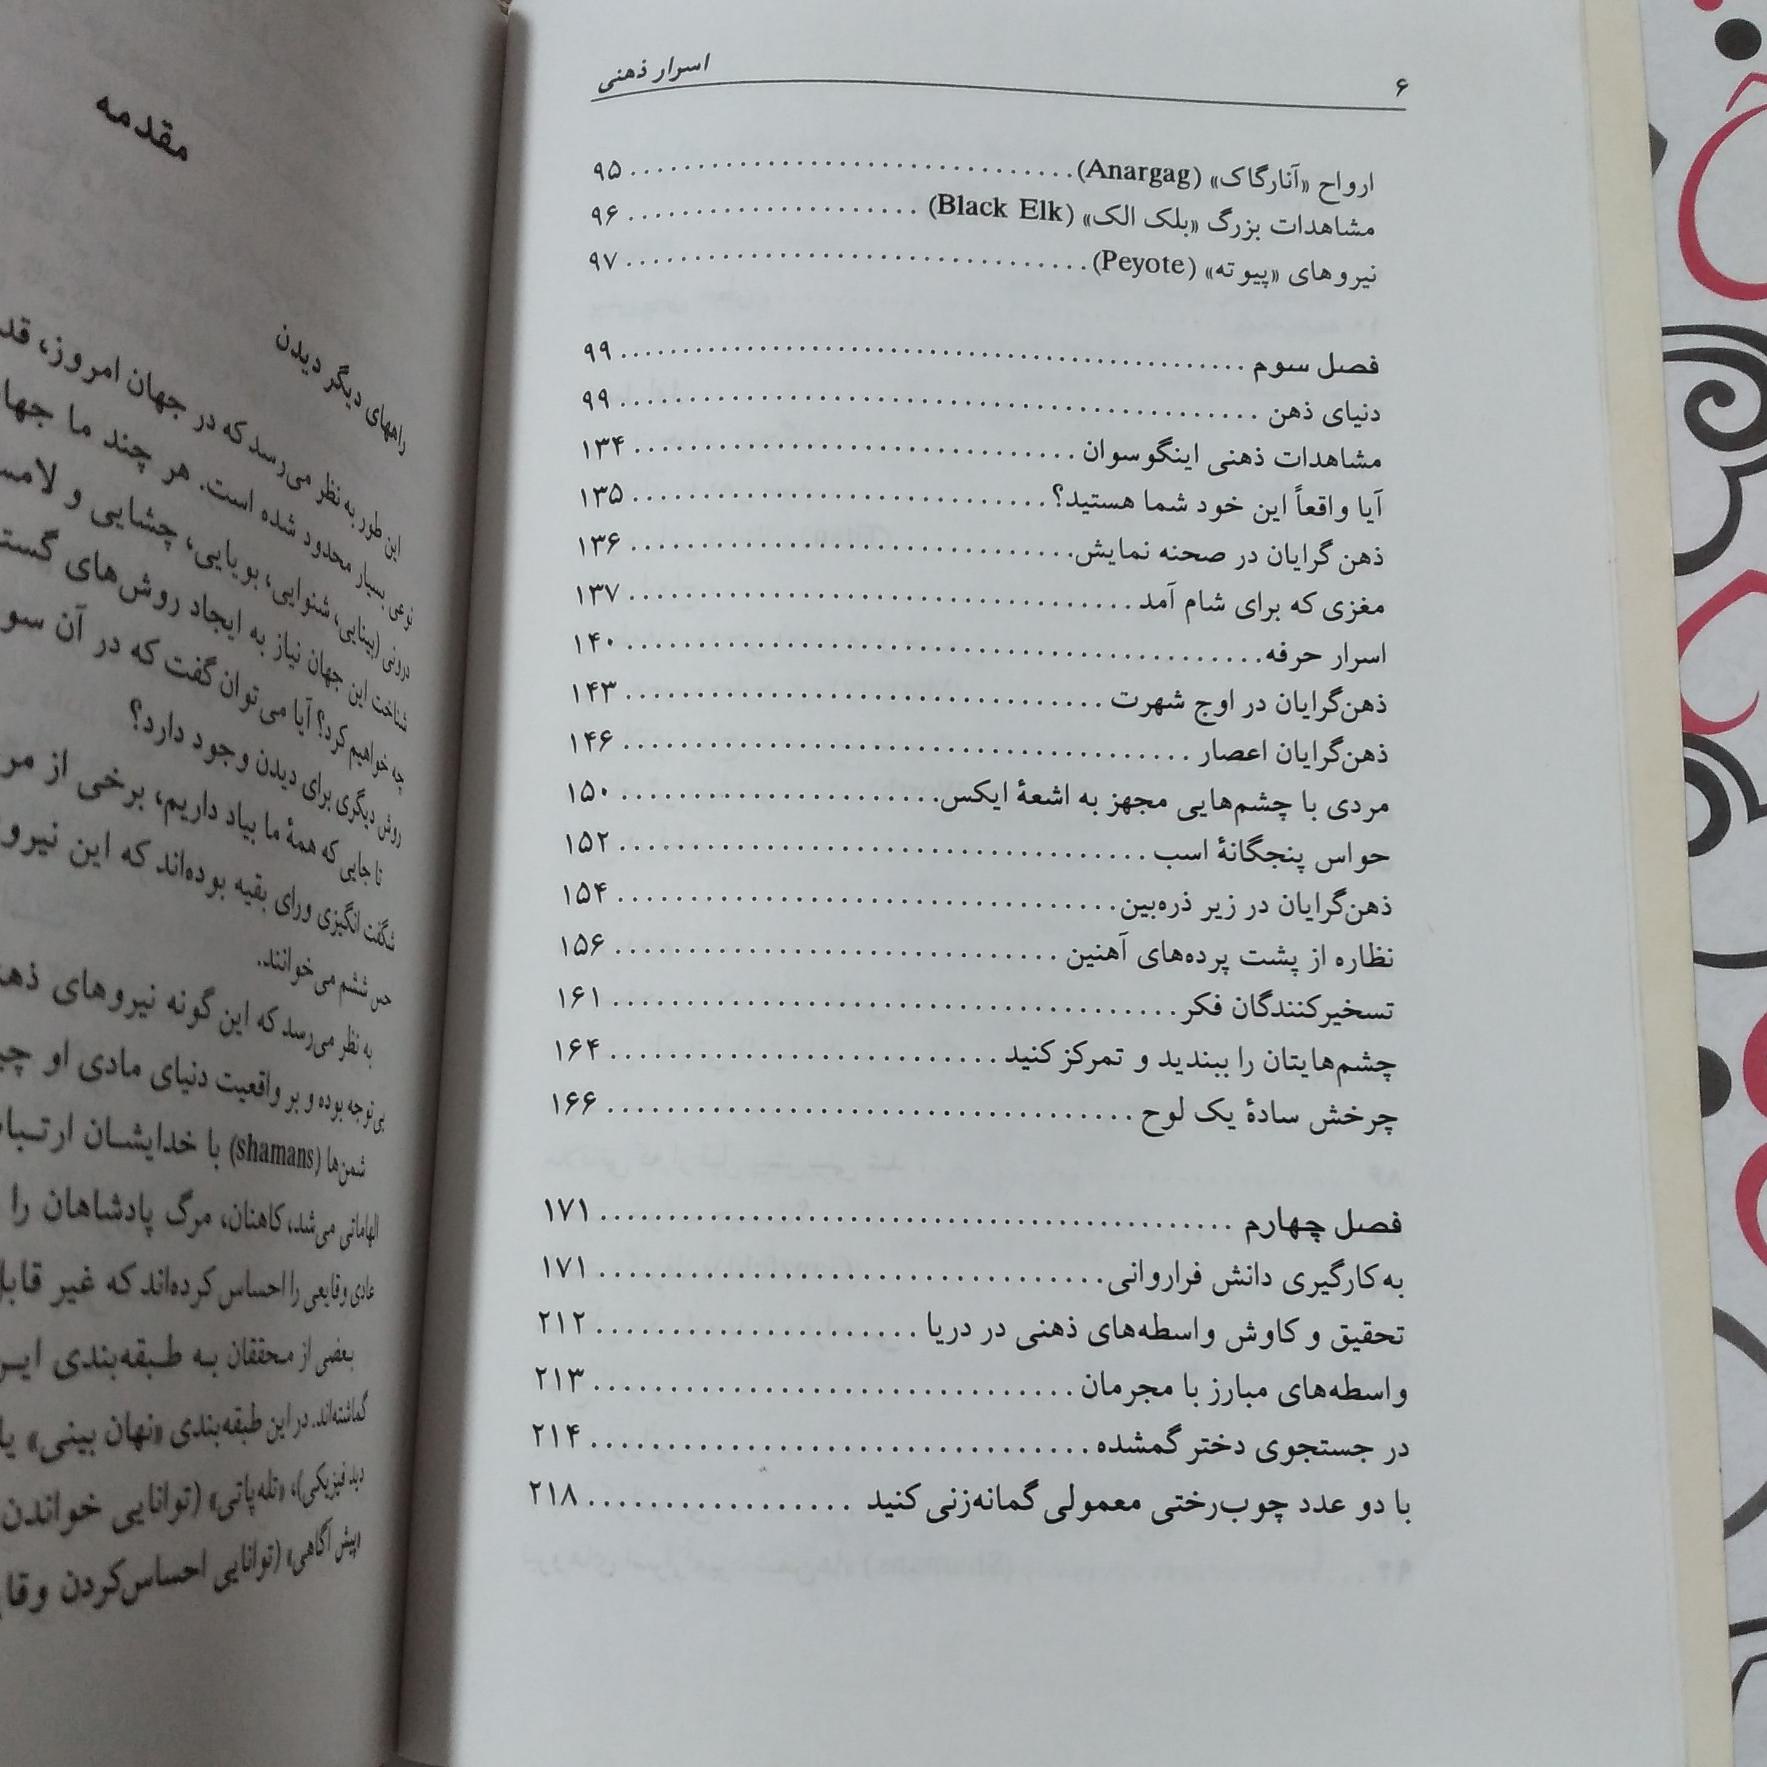 ۶
اسرار ذهنی
ارواح «آنارگاک» (Anargag) ۹۵
مشاهدات بزرگ «بلک الک» (Black Elk) ۹۶
نیروهای «پیوته» (Peyote) ۹۷
فصل سوم ۹۹
دنیای ذهن ۹۹
مشاهدات ذهنی اینگوسوان ۱۳۴
آیا واقعاً این خود شما هستید؟ ۱۳۵
ذهن گرایان در صحنه نمایش ۱۳۶
مغزی که برای شام آمد ۱۳۷
اسرار حرفه ۱۴۰
ذهن‌گرایان در اوج شهرت ۱۴۳
ذهن‌گرایان اعصار ۱۴۶
مردی با چشم‌هایی مجهز به اشعهٔ ایکس ۱۵۰
حواس پنجگانهٔ اسب ۱۵۲
ذهن‌گرایان در زیر ذره‌بین ۱۵۴
نظاره از پشت پرده‌های آهنین ۱۵۶
تسخیرکنندگان فکر ۱۶۱
چشم‌هایتان را ببندید و تمرکز کنید ۱۶۴
چرخش سادهٔ یک لوح ۱۶۶
فصل چهارم ۱۷۱
به‌کارگیری دانش فراروانی ۱۷۱
تحقیق و کاوش واسطه‌های ذهنی در دریا ۲۱۲
واسطه‌های مبارز با مجرمان ۲۱۳
در جستجوی دختر گمشده ۲۱۴
با دو عدد چوب‌رختی معمولی گمانه‌زنی کنید ۲۱۸
مقدمه
راههای دیگر دیدن
این طور به نظر می‌رسد که در جهان امروز،
نوعی بسیار محدود شده است. هر چند ما
درونی (بینایی، شنوایی، بویایی، چشایی و
شناخت این جهان نیاز به ایجاد روش‌های
چه خواهیم کرد؟ آیا می‌توان گفت که در آن
روش دیگری برای دیدن وجود دارد؟
تا جایی که همهٔ ما بیاد داریم، برخی از
شگفت انگیزی ورای بقیه بوده‌اند که این
حس ششم می‌خوانند.
به نظر می‌رسد که این گونه نیروهای
بی‌توجه بوده و بر واقعیت دنیای مادی او
شمن‌ها (shamans) با خدایشان
الهاماتی می‌شد، کاهنان، مرگ پادشاهان را
عادی وقایعی را احساس کرده‌اند که غیر
بعضی از محققان به طبقه‌بندی
گماشته‌اند. در این طبقه‌بندی «نهان بینی» یا
دید فیزیکی)، «تله‌پاتی» (توانایی خواندن
«پیش آگاهی» (توانایی احساس‌کردن